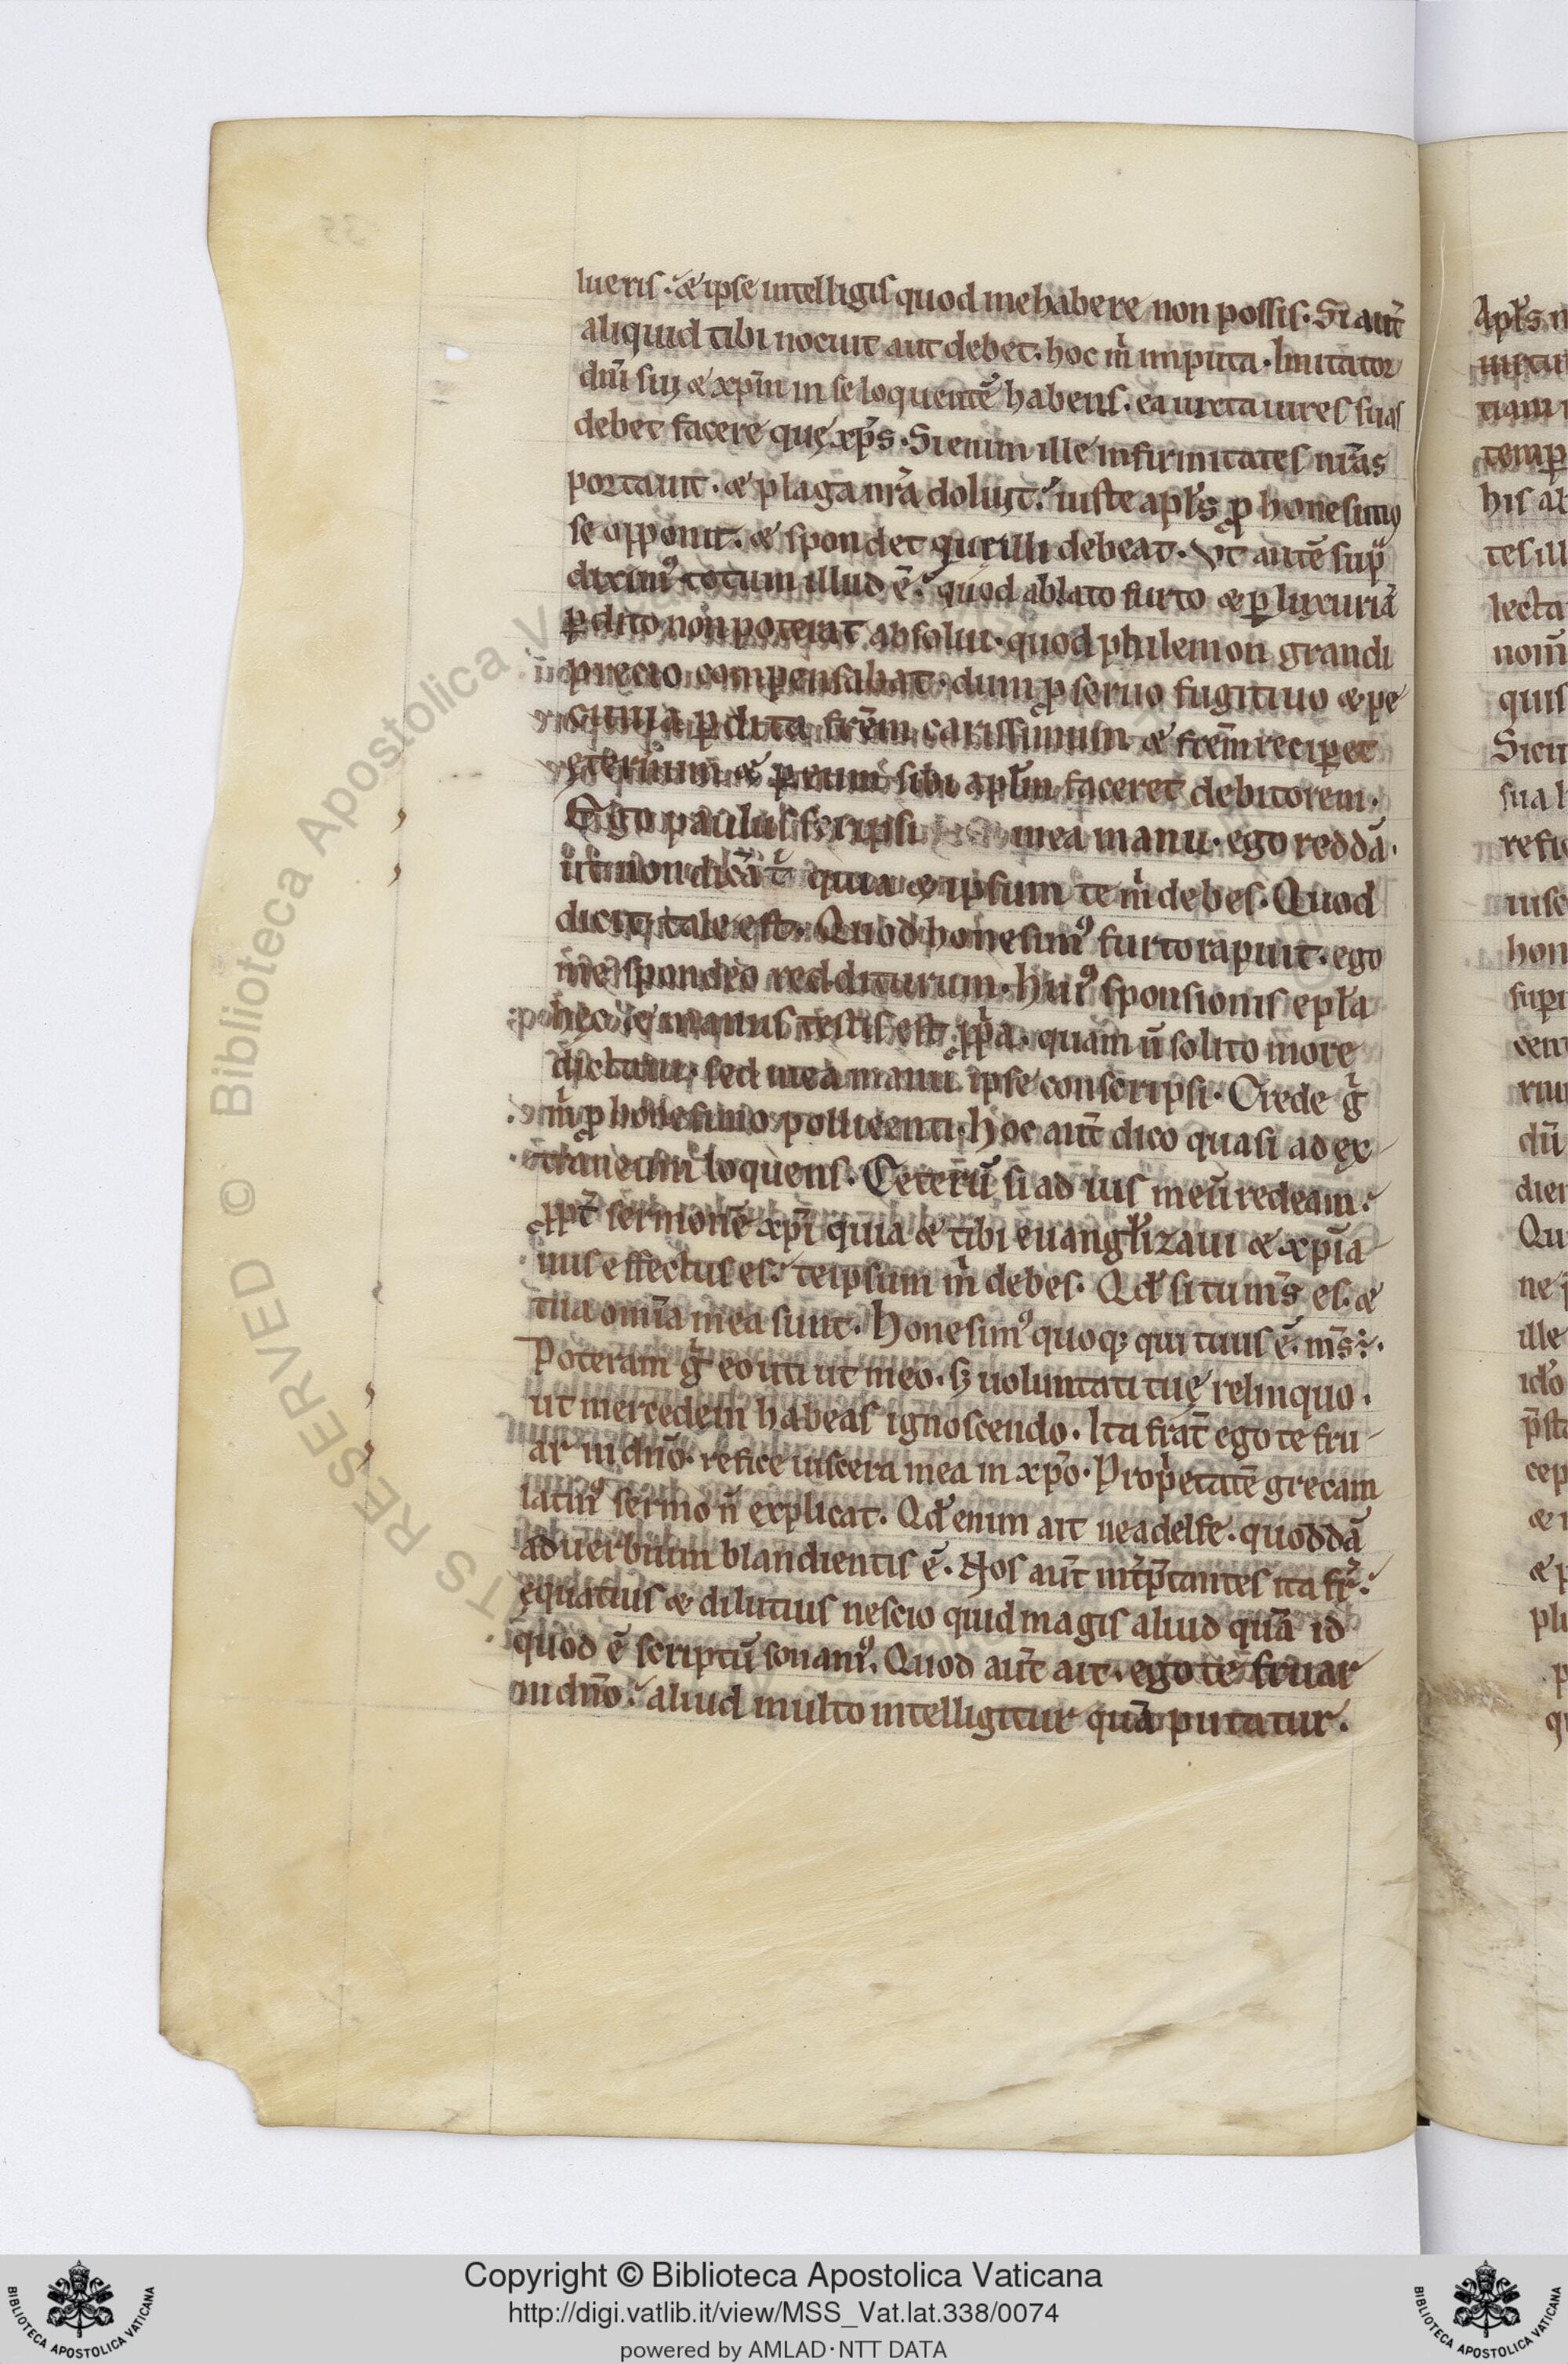 lueris. & ipse intelligis quod me habere non possis. Si aut̄
aliquid tibi nocuit aut debet. hoc m̄ imputa. Imitator
dn̄i sui & xp̄m in se loquentē habens. ea iuxta uires suas
debet facere quę xp̄s. Si enim ille infirmitates nr̄as
portauit. & plaga nr̄a doluit. iuste apl̄s ꝓ honesimo
se opponit. & spondet que illi debeat. Vt autē sup̄
diximꝰ totum illud ē. quod ablato furto & ꝑ luxuriā
ꝑdito non poterat absolui. quod philemon grandi
precio compensabat. dum ꝓ seruo fugitiuo & pe
cunia ꝑdita fr̄em carissimum & fr̄em reciꝑet
ęternum & ꝑ eum sibi apl̄m faceret debitorem.
Ego paulus scripsi mea manu. ego reddā.
ut non dicā t̄ quia & ipsum te m̄ debes. Quod
dicit tale est. Quod honesimꝰ furto rapuit. ego
me spondeo redditurum. huiꝰ sponsionis epl̄a
hęc & manus testis est ꝓp̄a. quam ū solito more
dictaui. sed mea manu ipse conscripsi. Crede g̊
m̄ ꝓ honesimo pollicenti. hoc aut̄ dico quasi ad ex
traneum loquens. Ceterū si ad ius meū redeam.
ꝓpt̄ sermonē xp̄i quia & tibi euangl̄izaui & xp̄ia
nus effectus es. teipsum m̄ debes. Qd̄ si tu m̄s es. &
tua omīa mea sunt. Honesimꝰ quoq; qui tuus ē. m̄s ē.
Poteram g̊ eo uti ut meo. sꝫ uoluntati tuę relinquo.
ut mercedem habeas ignoscendo. Ita frat̄ ego te fru
ar in dn̄o. refice uiscera mea in xp̄o. Prop̄etatē grecam
latinꝰ sermo n̄ explicat. Qd̄ enim ait neadelfe. quoddā
aduerbium blandientis ē. Nos aut̄ int̄p̄tantes ita fr̄.
ęquatius & dilutius nescio quid magis aliud quā id
quod ē scriptū sonamꝰ. Quod aut̄ ait. ego te fruar
in dn̄o. aliud multo intelligitur quā putatur.
Copyright © Biblioteca Apostolica Vaticana
http://digi.vatlib.it/view/MSS_Vat.lat.338/0074
powered by AMLAD·NTT DATA